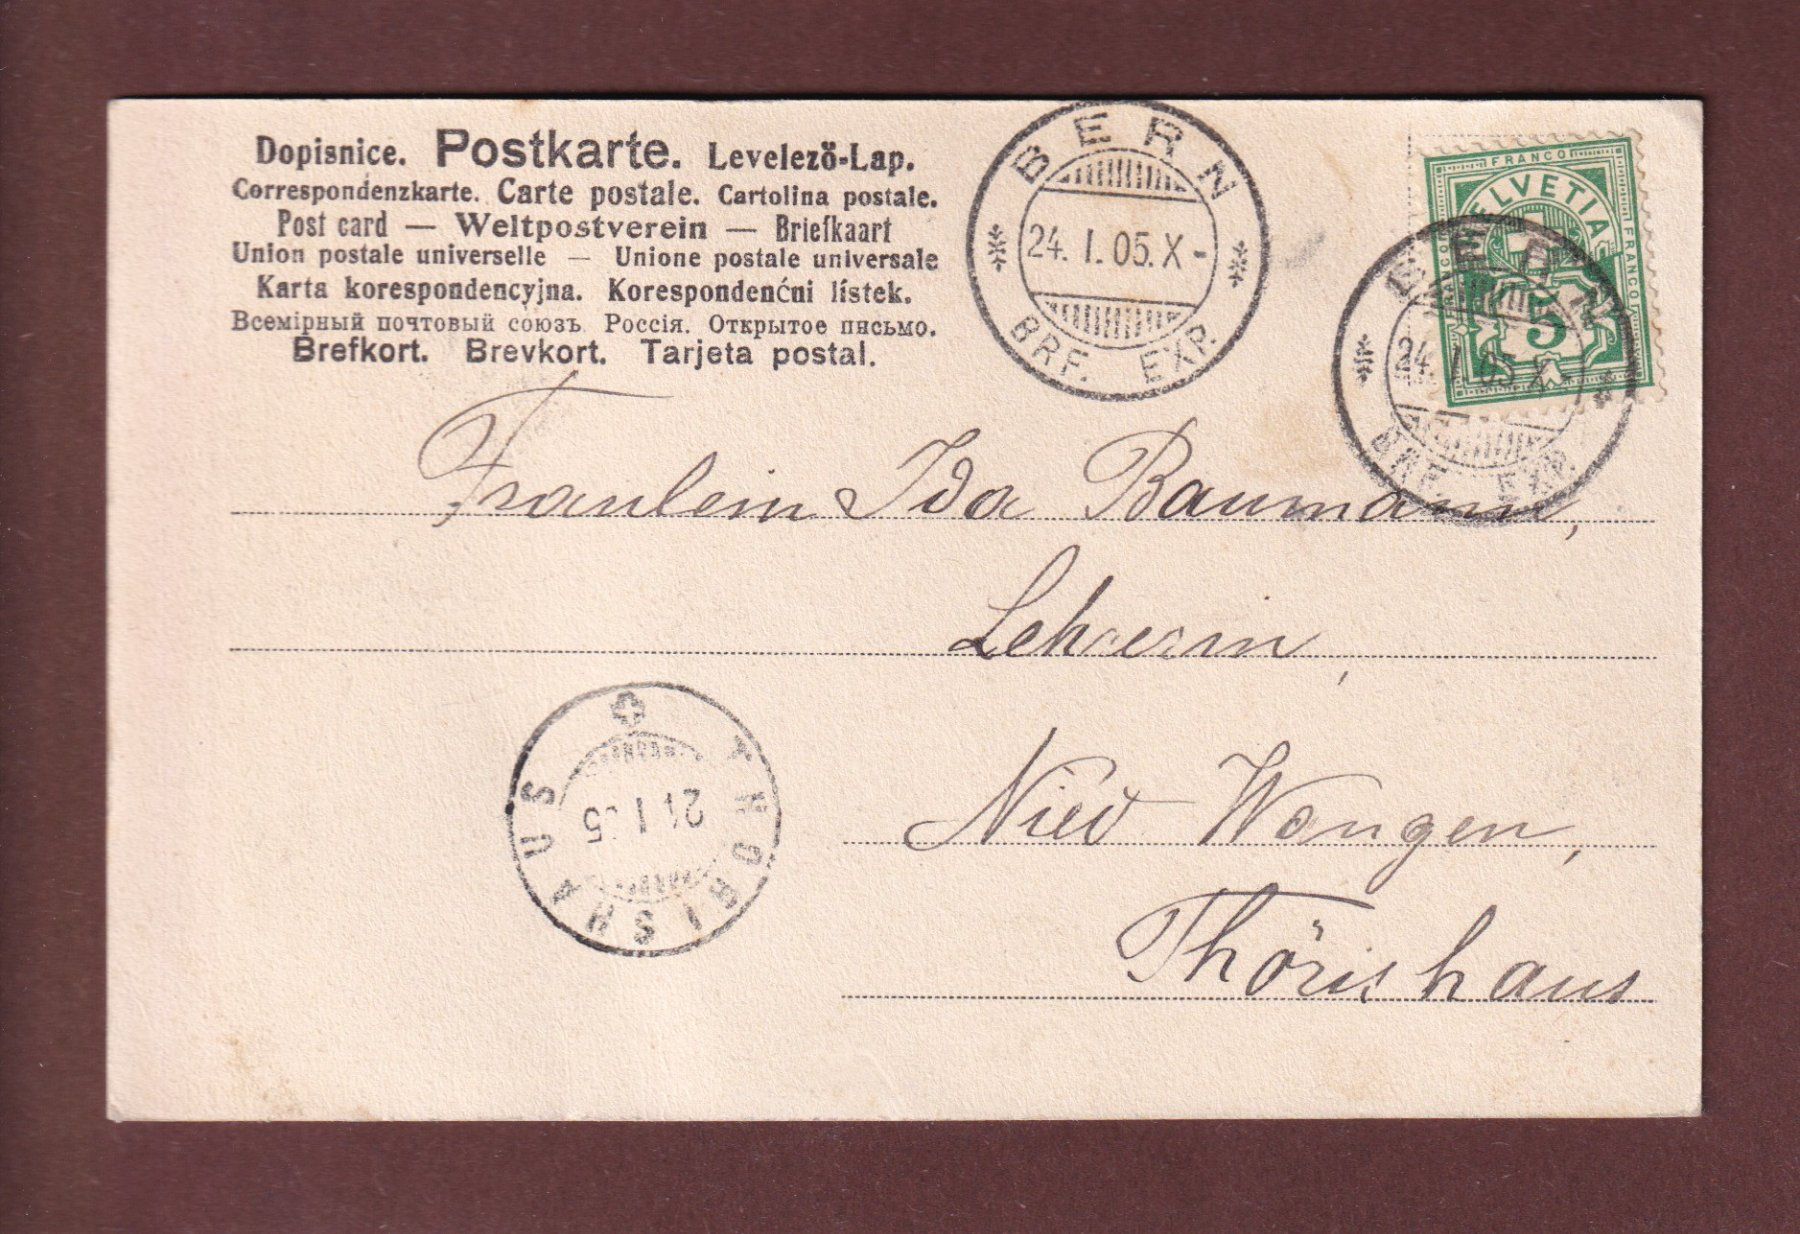 Dopisnice. Postkarte. Levelező-Lap.
Correspondenzkarte. Carte postale. Cartolina postale.
Post card — Weltpostverein — Briefkaart
Union postale universelle — Unione postale universale
Karta korespondencyjna. Korespondenćni lístek.
Всемірный почтовый союзъ Россія. Открытое письмо.
Brefkort. Brevkort. Tarjeta postal.
BERN
24. I. 05. X-
BRF. EXP.
FRANCO
HELVETIA
FRANCO
FRANCO
5
BERN
24. I. 05 X-
BRF. EXP.
Fräulein Ida Baumann,
Lehrerin,
Nied Wangen,
Thörishaus
THÖRISHAUS
24 I 05